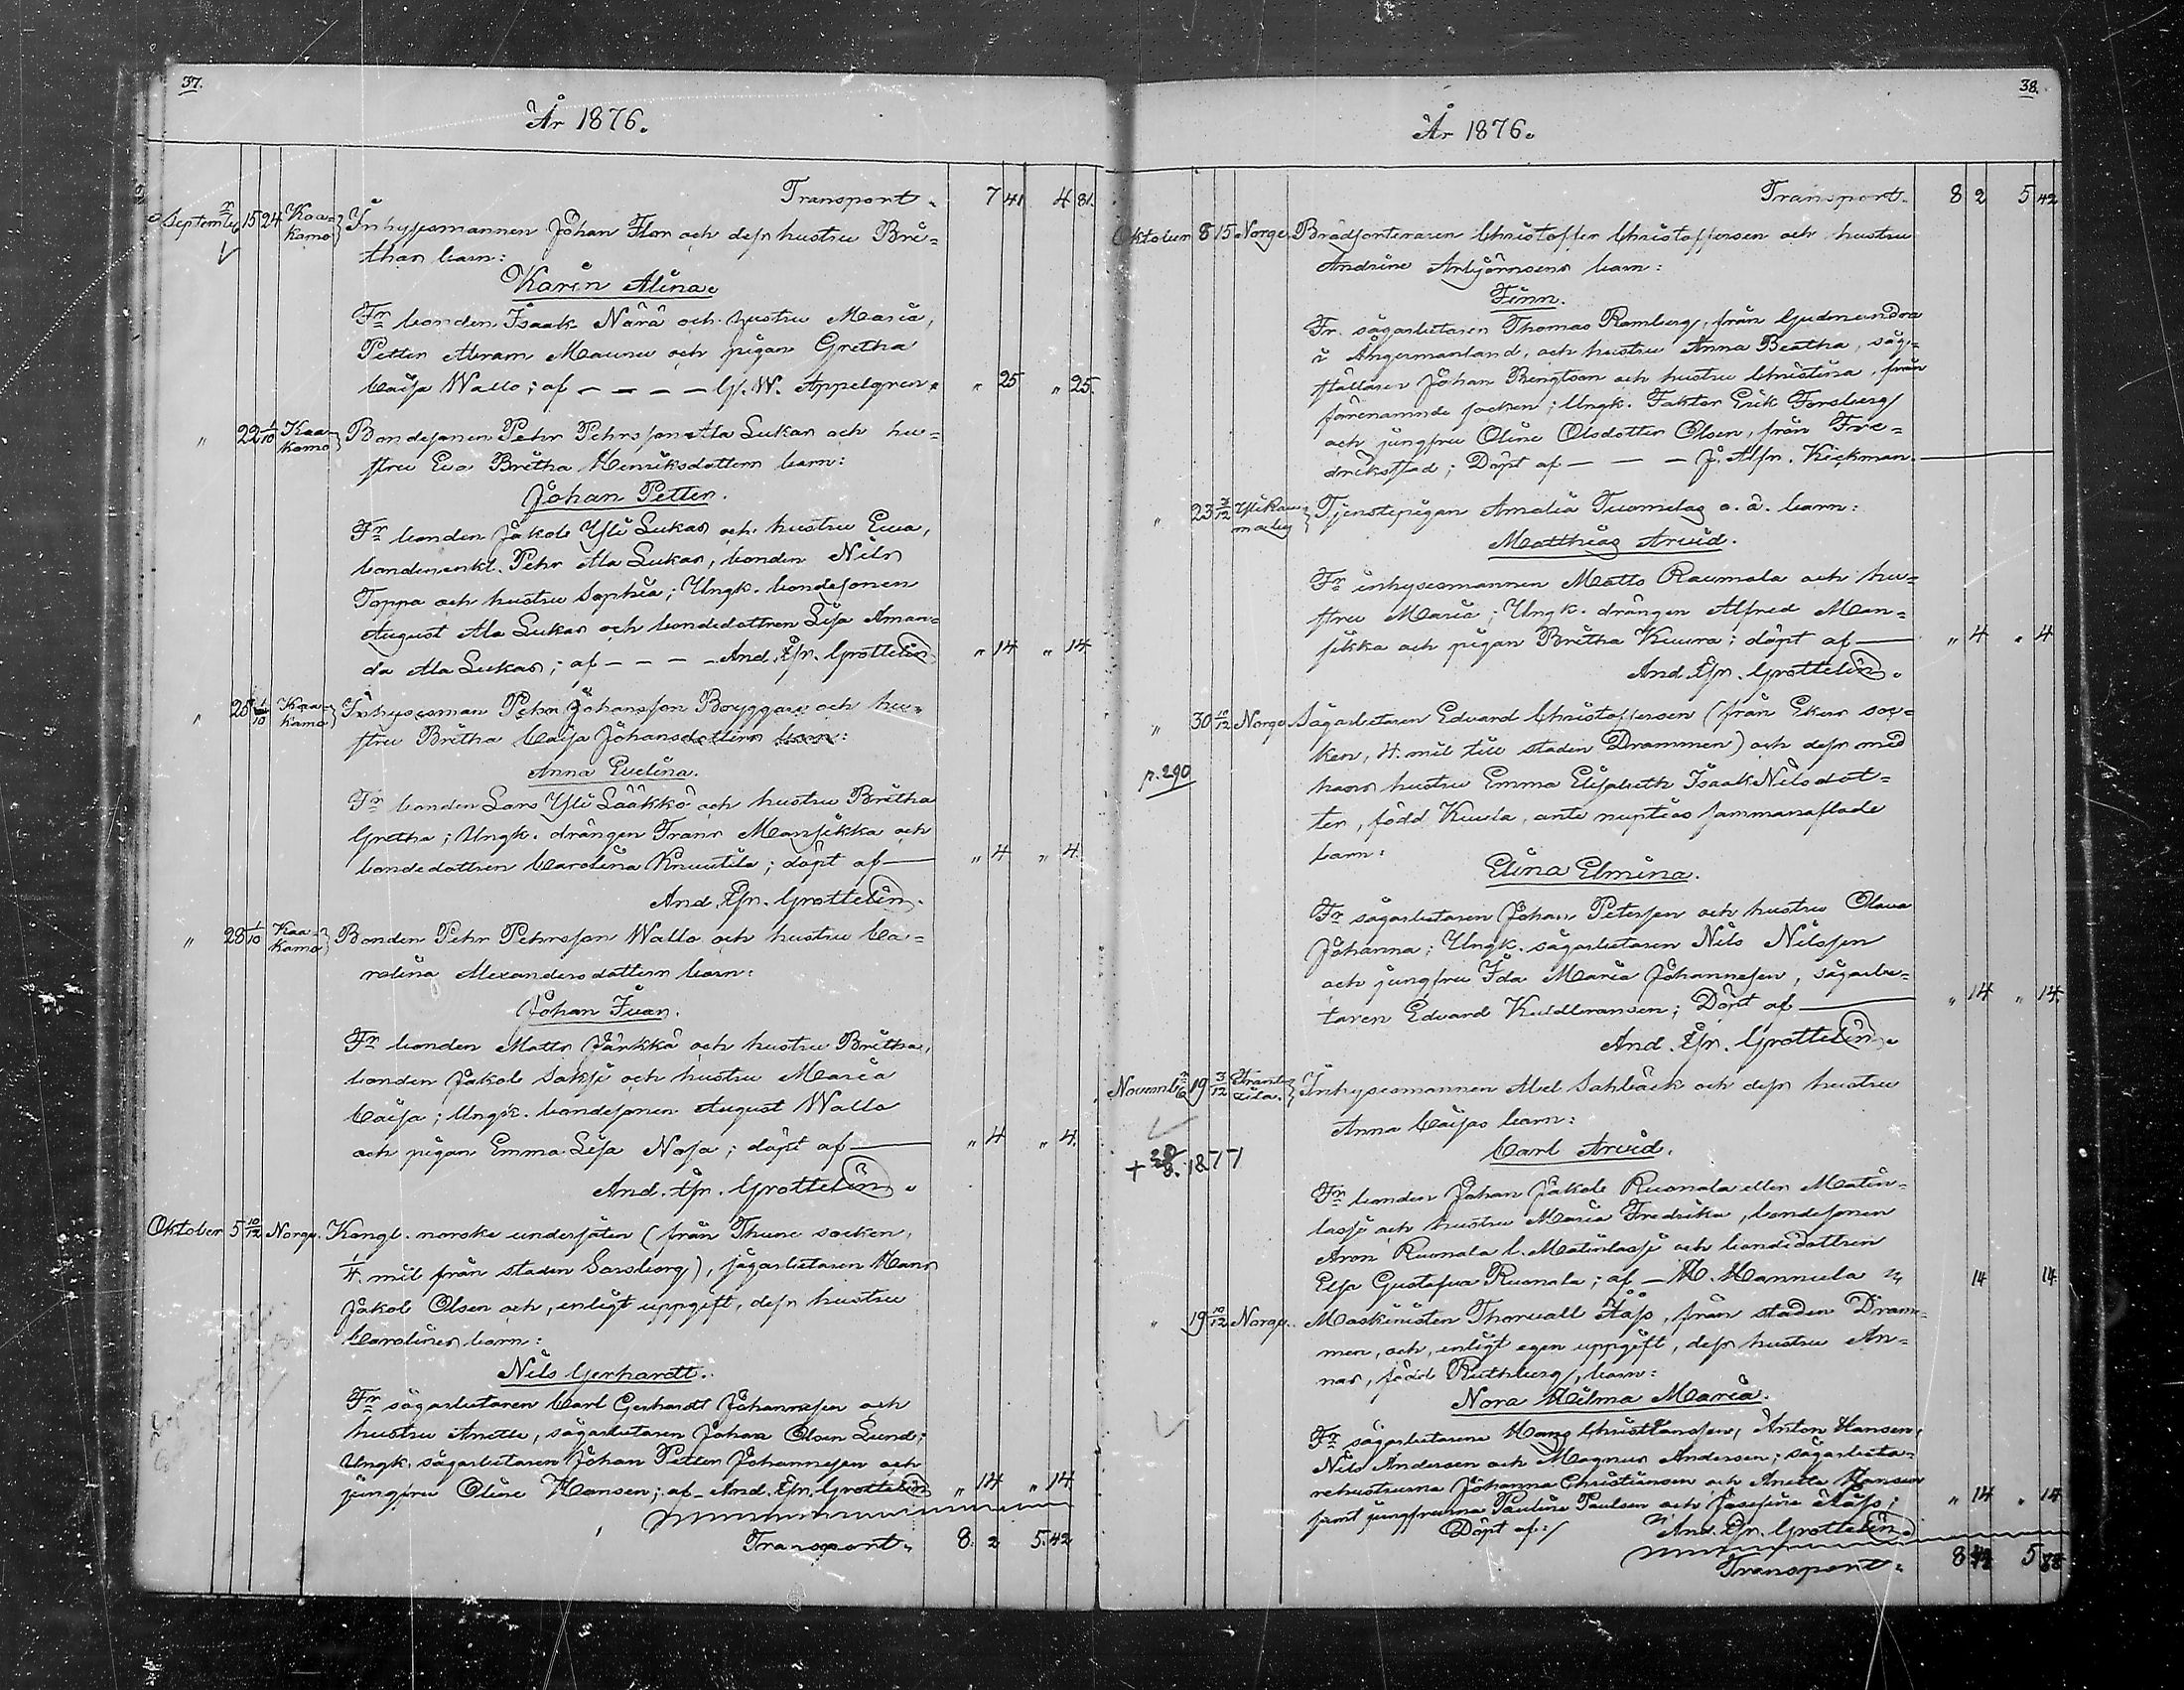 37.
År 1876.
Transport. 7 41 4 81.
September 15 24 Kaakamo Inhysesmannen Johan Flor och dess hustru Bri=
thas barn:
Karin Alina.
Fr bonden Isaak Närä och hustru Maria,
Petter Abram Maunu och pigan Gretha
Caisa Wallo; af — — — — G. W. Appelgren. " 25 " 25.
" 22 1/10 Kaakamo Bondesonen Pehr Pehrsson Ala Lukas och hu=
stru Eva Britha Henriksdotters barn:
Johan Petter.
Fr bonden Jakob Yli Lukas och hustru Ewa,
bondeenkl. Pehr Ala Lukas, bonden Nils
Toppa och hustru Sophia; Ungk. bondesonen
August Ala Lukas och bondedottren Lisa Aman=
da Ala Lukas; af — — — — And. Efr. Grottelin " 14 " 14
" 25 1/10 Kaakamo Inhysesman Pehr Johansson Bryggare och hu=
stru Britha Caisa Johansdotters barn:
Anna Evelina.
Fr bonden Lars Yli Lääkkö och hustru Britha
Gretha; Ungk. drängen Frans Mansikka och
bondedottren Carolina Knuutila; döpt af — " 4 " 4.
And. Efr. Grottelin.
" 28 1/10 Kaakamo Bonden Pehr Pehrsson Wallo och hustru Ca=
rolina Alexandersdotters barn:
Johan Ivar.
Fr bonden Matts Järkkä och hustru Britha,
bonden Jakob Saksi och hustru Maria
Caisa; Ungk. bondesonen August Wallo
och pigan Emma Lisa Nasa; döpt af — " 4 " 4.
And. Efr. Grottelin.
Oktober 5 10/12 Norge. Kongl. norske undersåten (från Thune socken,
1/4 mil från staden Sarsborg), sågarbetaren Hans
Jakob Olsen och, enligt uppgift, dess hustru
Carolines barn:
Nils Gerhardt.
Fr sågarbetaren Carl Gerhardt Johannesen och
hustru Anette, sågarbetaren Johan Olsen Lund;
Ungk. sågarbetaren Johan Petter Johannesen och
jungfru Oline Hansen; af — And. Efr. Grottelin " 14 " 14
Transport. 8. 2 5. 42
38.
År 1876.
Transport. 8 2 5 42
Oktober 8 15 Norge. Brädsorteraren Christoffer Christoffersen och hustru
Andrine Arbjörnsens barn:
Finn.
Fr. sågarbetaren Thomas Ramberg, från Gudmundra
i Ångermanland, och hustru Anna Beatha, såg=
ställaren Johan Bengtson och hustru Christina, från
förenämnde socken; Ungk. Faktor Erik Forsberg
och jungfru Oline Olsdotter Olsen, från Fre=
drikstad; Döpt af — — — J. Alfr. Kickman.
" 23 3/12 Tjenstepigan Amalia Tuomelas o. ä. barn:
Matthias Arvid.
Fr inhysesmannen Matts Raumala och hu=
stru Maria; Ungk. drängen Alfred Man=
sikka och pigan Britha Kuura; döpt af — " 4 " 4
And. Efr. Grottelin.
" 30 10/12 Norge Sågarbetaren Edvard Christoffersen (från Ekers soc=
ken, 4. mil till staden Drammen) och dess med
p. 290
hans hustru Emma Elisabeth Isaak Nilsdot=
ter, född Kuula, ante nuptias sammanaflade
barn:
Elina Elmina.
Fr sågarbetaren Johan Petersen och hustru Olava
Johanna; Ungk. sågarbetaren Nils Nilssen
och jungfru Ida Maria Johannesen, sågarbe=
taren Edvard Kuldbransen; Döpt af — " 14 " 14.
And. Efr. Grottelin.
November 19 3/12 Inhysesmannen Abel Sahlbäck och dess hustru
Anna Caisas barn:
Carl Arvid.
+ 20/8. 1877
Fr bonden Johan Jakob Ruonala eller Matin=
lassi och hustru Maria Fredrika, bondesonen
Aron Ruonala l. Matinlassi och bondedottren
Elsa Gustafva Ruonala; af — M. Mannula 14 14
" 19 10/12 Norge. Maskinisten Thorvall Häss, från staden Dram=
men, och, enligt egen uppgift, dess hustru An=
nas, född Ruthberg, barn:
Nora Hilma Maria.
Fr sågarbetarene Hans Christianssen, Anton Hansen,
Nils Andersen och Magnus Andersen; sågarbeta=
rehustrurna Johanna Christiansen och Anette Hansen
samt jungfrurna Pauline Paulsen och Josefine Häss; " 14 " 14
Döpt af:/ And. Efr. Grottelin.
Transport. 8 5 88